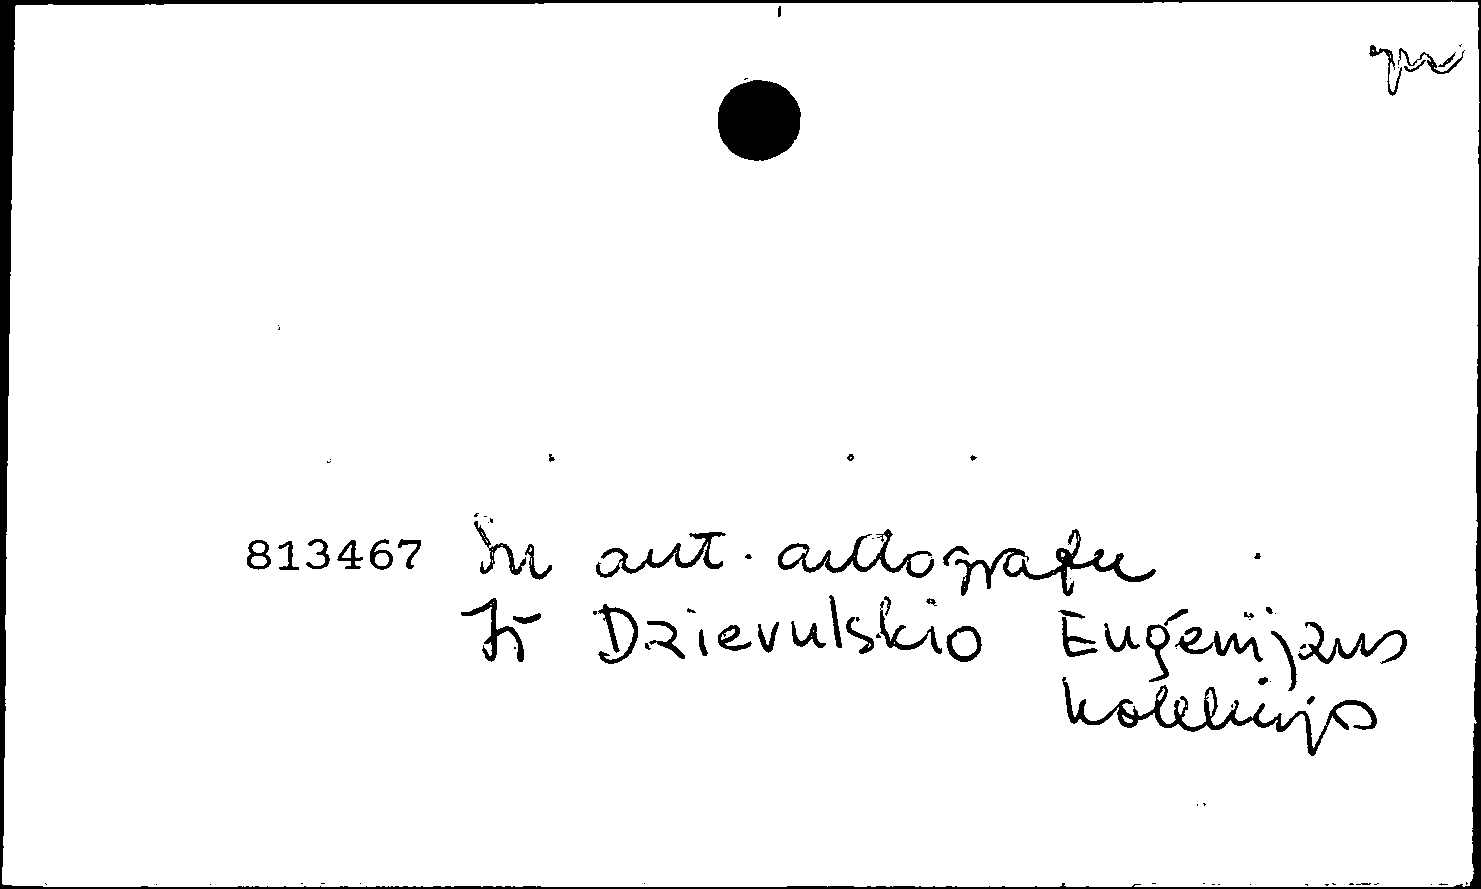 813467 Su aut. autografu
Iš Dzievulskio Eugenijaus
kolekcijos